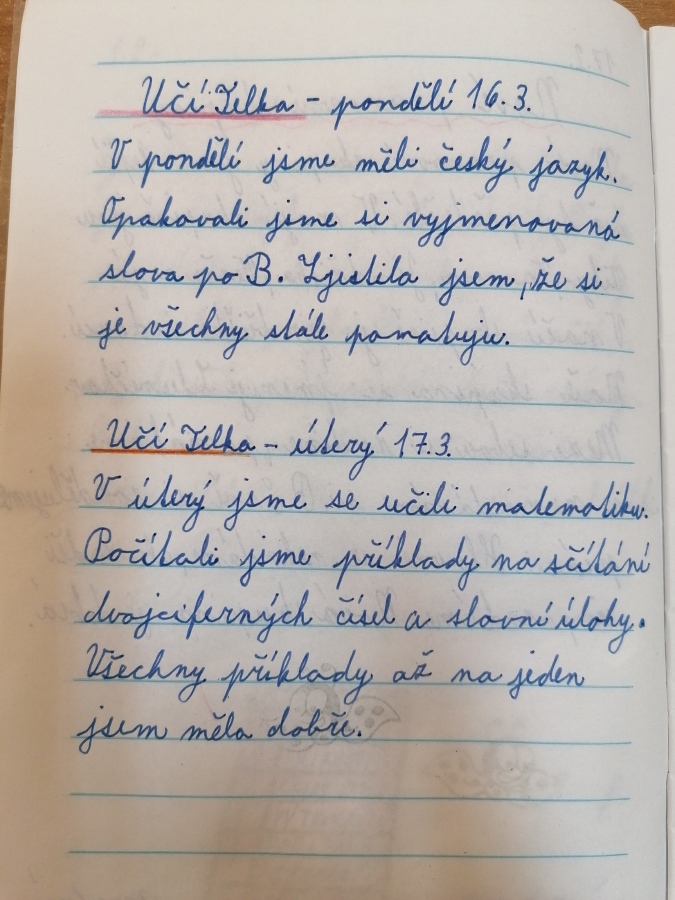 Učí Telka - pondělí 16.3.
V pondělí jsme měli český jazyk.
Opakovali jsme si vyjmenovaná
slova po B. Zjistila jsem, že si
je všechny stále pamatuju.
Učí Telka - úterý 17.3.
V úterý jsme se učili matematiku.
Počítali jsme příklady na sčítání
dvojciferných čísel a slovní úlohy.
Všechny příklady až na jeden
jsem měla dobře.